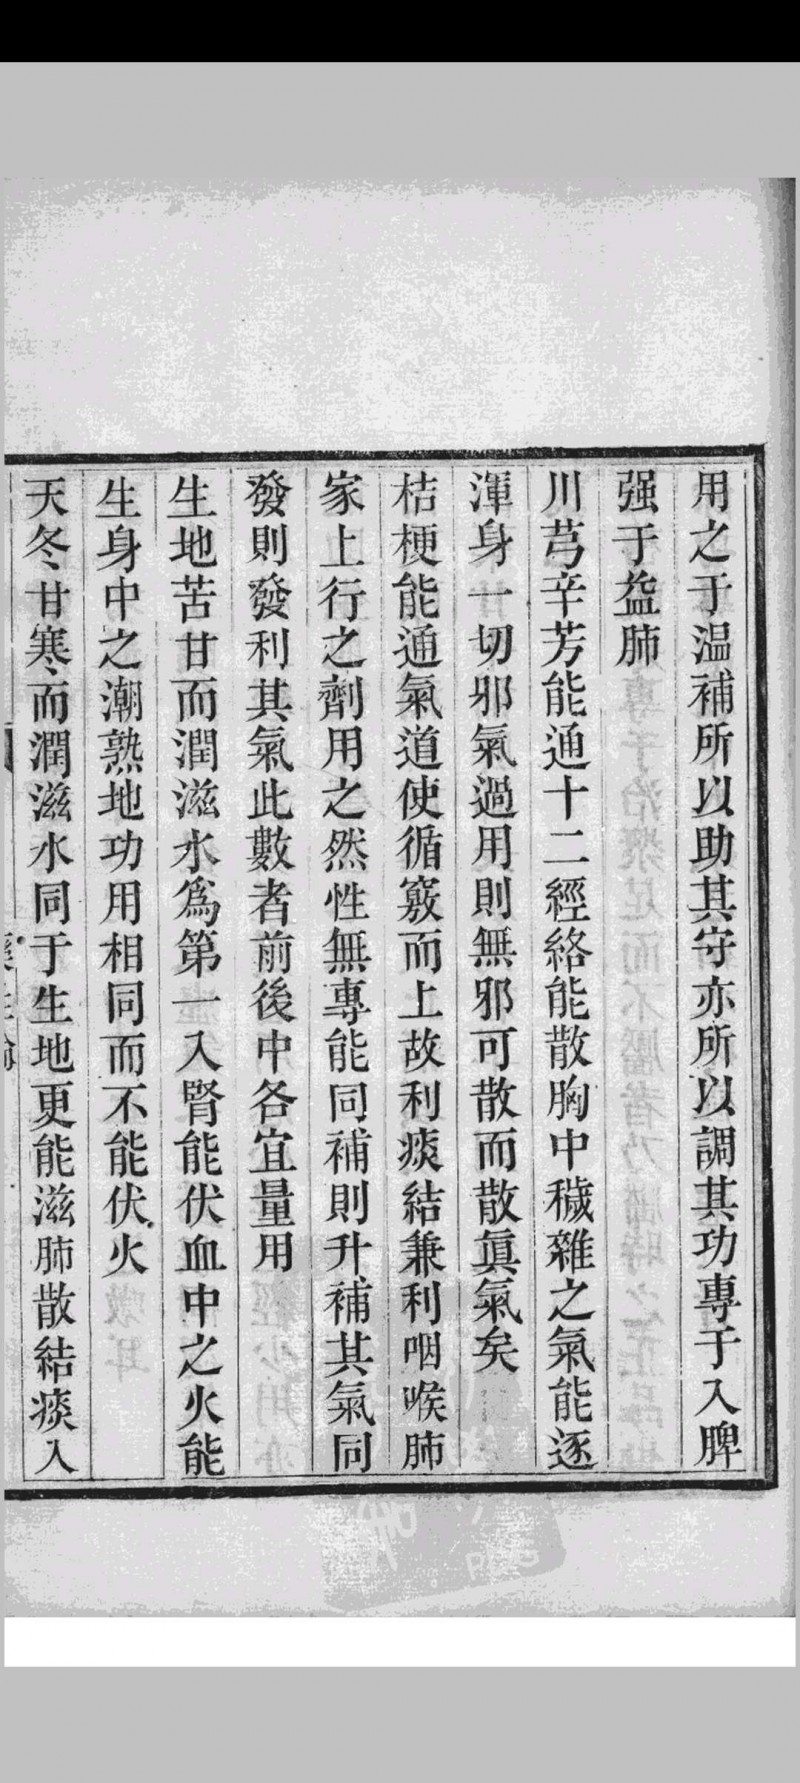 用之于温補所以助其守亦所以調其功專于入脾
强于益肺
川芎辛芳能通十二經絡能散胸中穢雜之氣能逐
渾身一切邪氣過用則無邪可散而散眞氣矣
桔梗能通氣道使循竅而上故利痰結兼利咽喉肺
家上行之劑用之然性無專能同補則升補其氣同
發則發利其氣此數者前後中各宜量用
生地苦甘而潤滋水爲第一入腎能伏血中之火能
生身中之潮熟地功用相同而不能伏火
天冬甘寒而潤滋水同于生地更能滋肺散結痰入